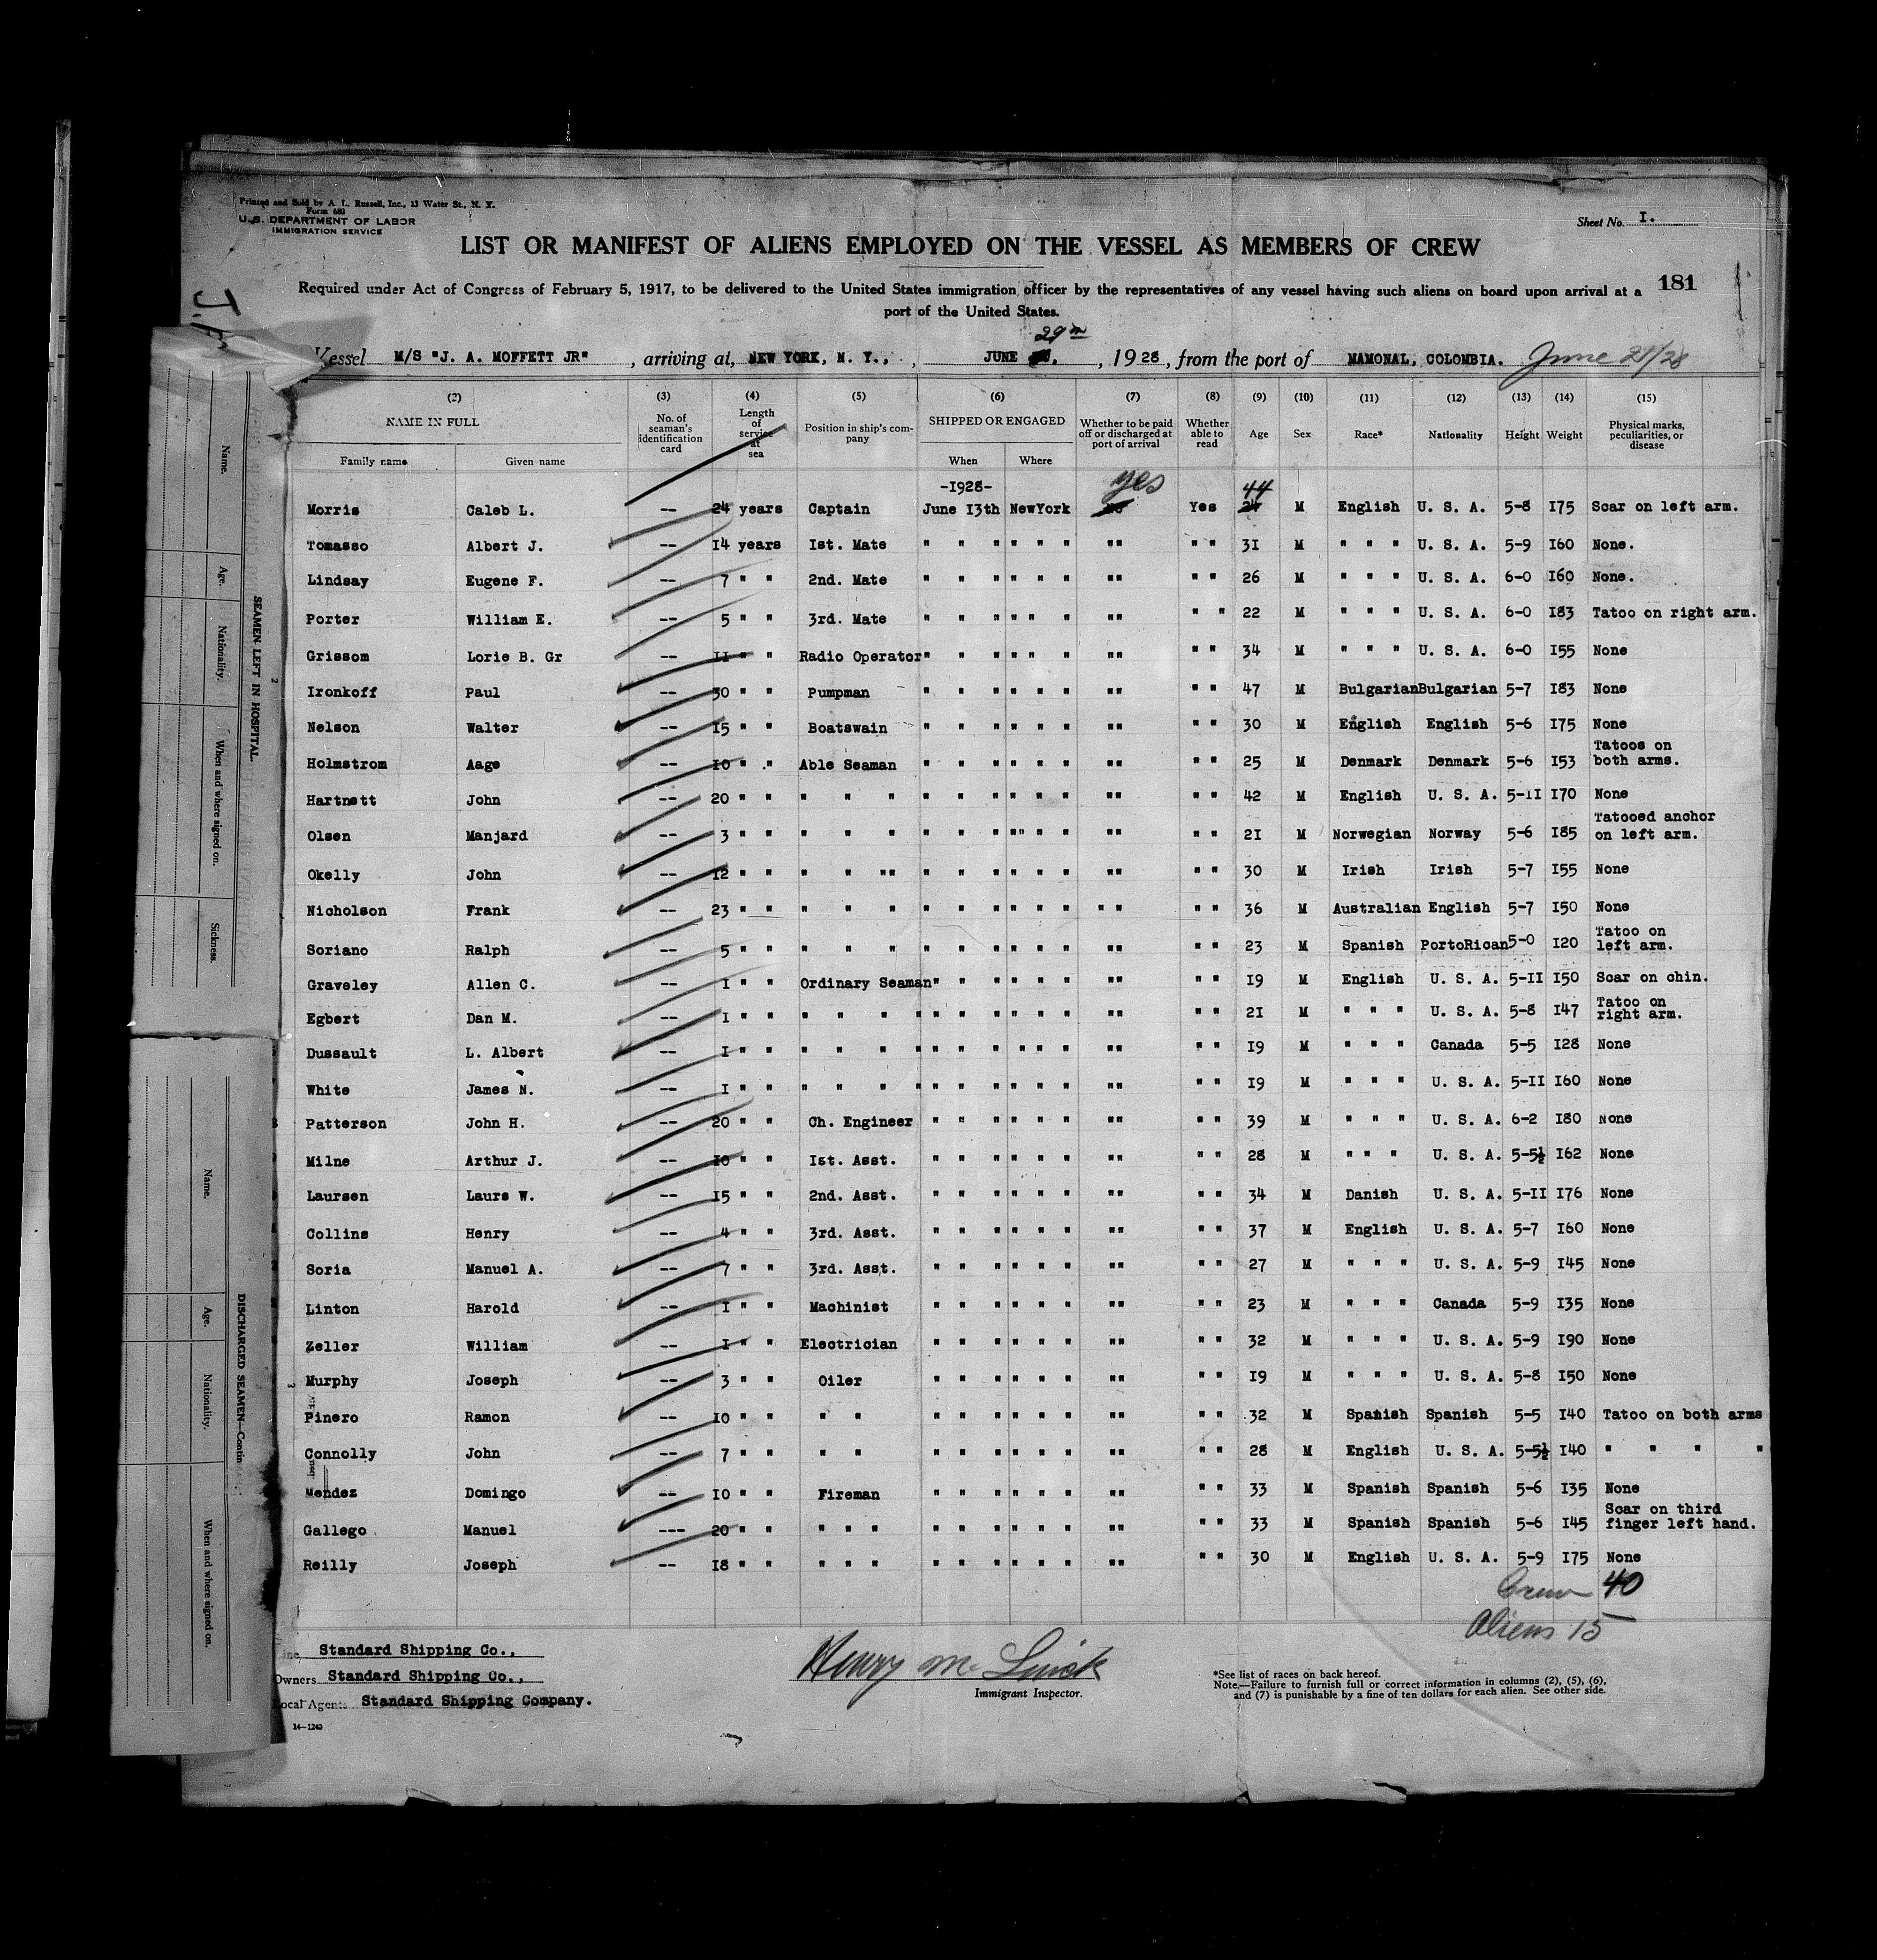 Printed and Sold by A. L. Russell, Inc., 13 Water St., N. Y.
Form 680
U.S. DEPARTMENT OF LABOR
IMMIGRATION SERVICE
Sheet No. I.
LIST OR MANIFEST OF ALIENS EMPLOYED ON THE VESSEL AS MEMBERS OF CREW
181
Required under Act of Congress of February 5, 1917, to be delivered to the United States immigration officer by the representatives of any vessel having such aliens on board upon arrival at a
port of the United States.
29th
Vessel M/S "J. A. MOFFETT JR" , arriving at, NEW YORK, N. Y., , JUNE , 19 28 , from the port of MAMONAL, COLOMBIA. June 21/28
(2) (3) (4) (5) (6) (7) (8) (9) (10) (11) (12) (13) (14) (15)
NAME IN FULL No. of seaman's identification card Length of service at sea Position in ship's company SHIPPED OR ENGAGED Whether to be paid off or discharged at port of arrival Whether able to read Age Sex Race* Nationality Height Weight Physical marks, peculiarities, or disease
Family name Given name When Where
-I928- yes 44
Morris Caleb L. -- 24 years Captain June I3th NewYork no Yes 24 M English U. S. A. 5-8 I75 Scar on left arm.
Tomasso Albert J. -- I4 years Ist. Mate " " " " " " "" " " 3I M " " " U. S. A. 5-9 I60 None.
Lindsay Eugene F. -- 7 " " 2nd. Mate " " " " " " "" " " 26 M " " " U. S. A. 6-0 I60 None.
Porter William E. -- 5 " " 3rd. Mate " " " " " " "" " " 22 M " " " U. S. A. 6-0 I83 Tatoo on right arm.
Grissom Lorie B. Gr -- II " " Radio Operator " " " " " " "" " " 34 M " " " U. S. A. 6-0 I55 None
Ironkoff Paul -- 30 " " Pumpman " " " " " " "" " " 47 M Bulgarian Bulgarian 5-7 I83 None
Nelson Walter -- I5 " " Boatswain " " " " " " "" " " 30 M English English 5-6 I75 None
Holmstrom Aage -- I0 " " Able Seaman " " " " " " "" " " 25 M Denmark Denmark 5-6 I53 Tatoos on both arms.
Hartnett John -- 20 " " " " " " " " " " " "" " " 42 M English U. S. A. 5-II I70 None
Olsen Manjard -- 3 " " " " " " " " "" " " "" " " 2I M Norwegian Norway 5-6 I85 Tatooed anchor on left arm.
Okelly John -- I2 " " " " "" " " " " " " "" " " 30 M Irish Irish 5-7 I55 None
Nicholson Frank -- 23 " " " " " " " " " " " " " " " 36 M Australian English 5-7 I50 None
Soriano Ralph -- 5 " " " " " " " " " " " "" " " 23 M Spanish PortoRican 5-0 I20 Tatoo on left arm.
Graveley Allen C. -- I " " Ordinary Seaman " " " " " " "" " " I9 M English U. S. A. 5-II I50 Scar on chin.
Egbert Dan M. -- I " " " " " " " " " " " " "" " " 2I M " " " U. S. A. 5-8 I47 Tatoo on right arm.
Dussault L. Albert -- I " " " " " " " " " " " " "" " " I9 M " " " Canada 5-5 I28 None
White James N. -- I " " " " " " " " " " " " "" " " I9 M " " " U. S. A. 5-II I60 None
Patterson John H. -- 20 " " Ch. Engineer " " " " " " "" " " 39 M " " " U. S. A. 6-2 I80 None
Milne Arthur J. -- I0 " " Ist. Asst. " " " " " " "" " " 28 M " " " U. S. A. 5-5½ I62 None
Laursen Laurs W. -- I5 " " 2nd. Asst. " " " " " " "" " " 34 M Danish U. S. A. 5-II I76 None
Collins Henry -- 4 " " 3rd. Asst. " " " " " " "" " " 37 M English U. S. A. 5-7 I60 None
Soria Manuel A. -- 7 " " 3rd. Asst. " " " " " " "" " " 27 M " " " U. S. A. 5-9 I45 None
Linton Harold -- I " " Machinist " " " " " " "" " " 23 M " " " Canada 5-9 I35 None
Zeller William -- I " " Electrician " " " " " " "" " " 32 M " " " U. S. A. 5-9 I90 None
Murphy Joseph -- 3 " " Oiler " " " " " " "" " " I9 M " " " U. S. A. 5-8 I50 None
Pinero Ramon -- I0 " " " " " " " " " " "" " " 32 M Spanish Spanish 5-5 I40 Tatoo on both arms
Connolly John -- 7 " " " " " " " " " " "" " " 28 M English U. S. A. 5-5½ I40 " " " "
Mendez Domingo -- I0 " " Fireman " " " " " " "" " " 33 M Spanish Spanish 5-6 I35 None
Gallego Manuel --- 20 " " " " " " " " " " " "" " " 33 M Spanish Spanish 5-6 I45 Scar on third finger left hand.
Reilly Joseph -- I8 " " " " " " " " " " " "" " " 30 M English U. S. A. 5-9 I75 None
Crew 40
Aliens 15
Line Standard Shipping Co.,
Owners Standard Shipping Co.,
Local Agents Standard Shipping Company.
Immigrant Inspector.
*See list of races on back hereof.
Note.—Failure to furnish full or correct information in columns (2), (5), (6),
and (7) is punishable by a fine of ten dollars for each alien. See other side.
14—1240
SEAMEN LEFT IN HOSPITAL.
Name.
Age.
Nationality.
When and where signed on.
Sickness.
DISCHARGED SEAMEN—Contin
Name.
Age.
Nationality.
When and where signed on.